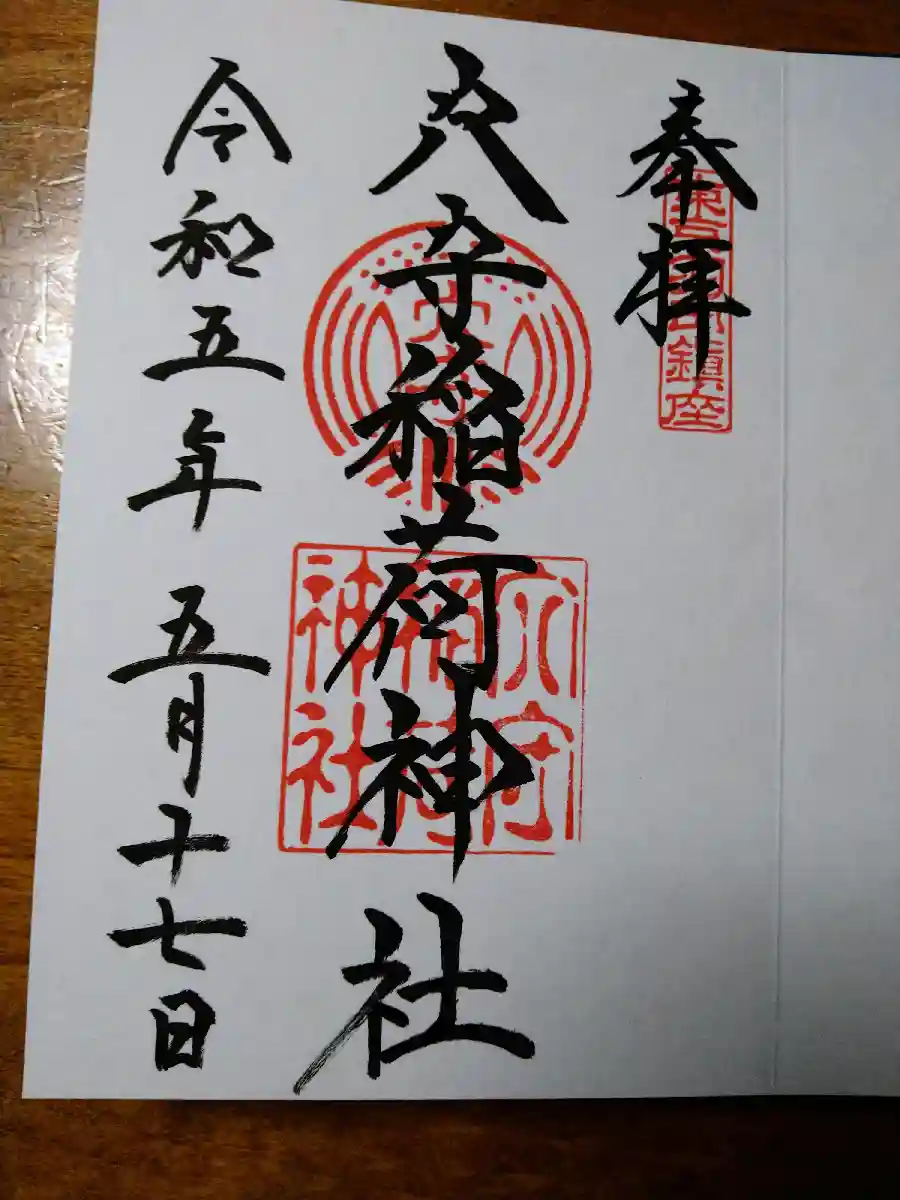 奉拝
東京羽田鎮座
穴守稲荷神社
穴守稲荷神社
令和五年五月十七日